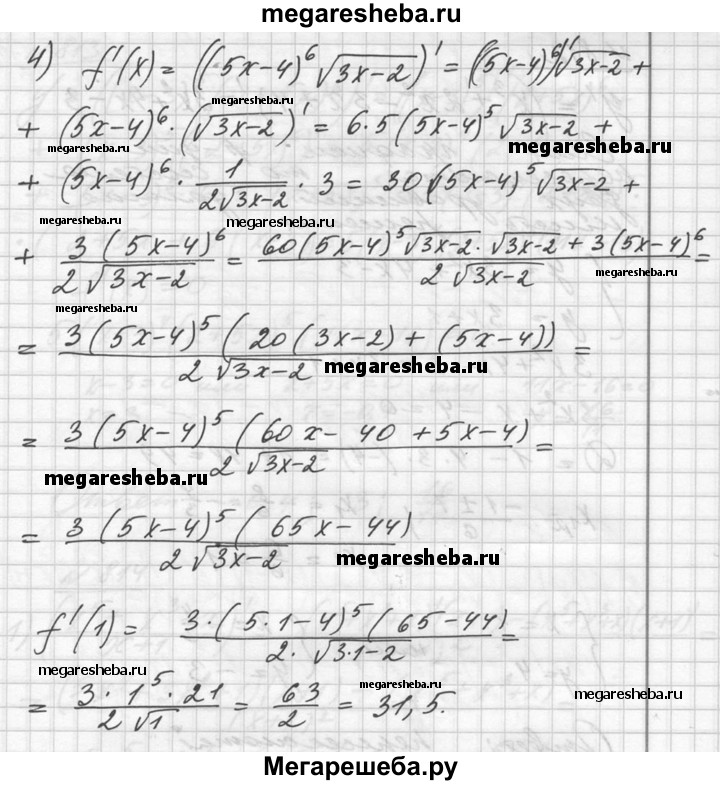 megaresheba.ru
4) f'(x) = ((5x-4)^6 √(3x-2))' = ((5x-4)^6)' √(3x-2) +
+ (5x-4)^6 · (√(3x-2))' = 6·5(5x-4)^5 √(3x-2) +
megaresheba.ru
megaresheba.ru
megaresheba.ru
+ (5x-4)^6 · 1/(2√(3x-2)) · 3 = 30(5x-4)^5 √(3x-2) +
megaresheba.ru
megaresheba.ru
+ 3(5x-4)^6/(2√(3x-2)) = (60(5x-4)^5 √(3x-2) · √(3x-2) + 3(5x-4)^6)/(2√(3x-2)) =
megaresheba.ru
megaresheba.ru
= 3(5x-4)^5 (20(3x-2) + (5x-4))/(2√(3x-2)) =
megaresheba.ru
= 3(5x-4)^5 (60x - 40 + 5x - 4)/(2√(3x-2)) =
megaresheba.ru
= 3(5x-4)^5 (65x - 44)/(2√(3x-2))
megaresheba.ru
f'(1) = 3·(5·1-4)^5 (65-44)/(2·√(3·1-2)) =
megaresheba.ru
= 3·1^5·21/(2√1) = 63/2 = 31,5.
megaresheba.ru
megaresheba.ru
Мегарешеба.ру